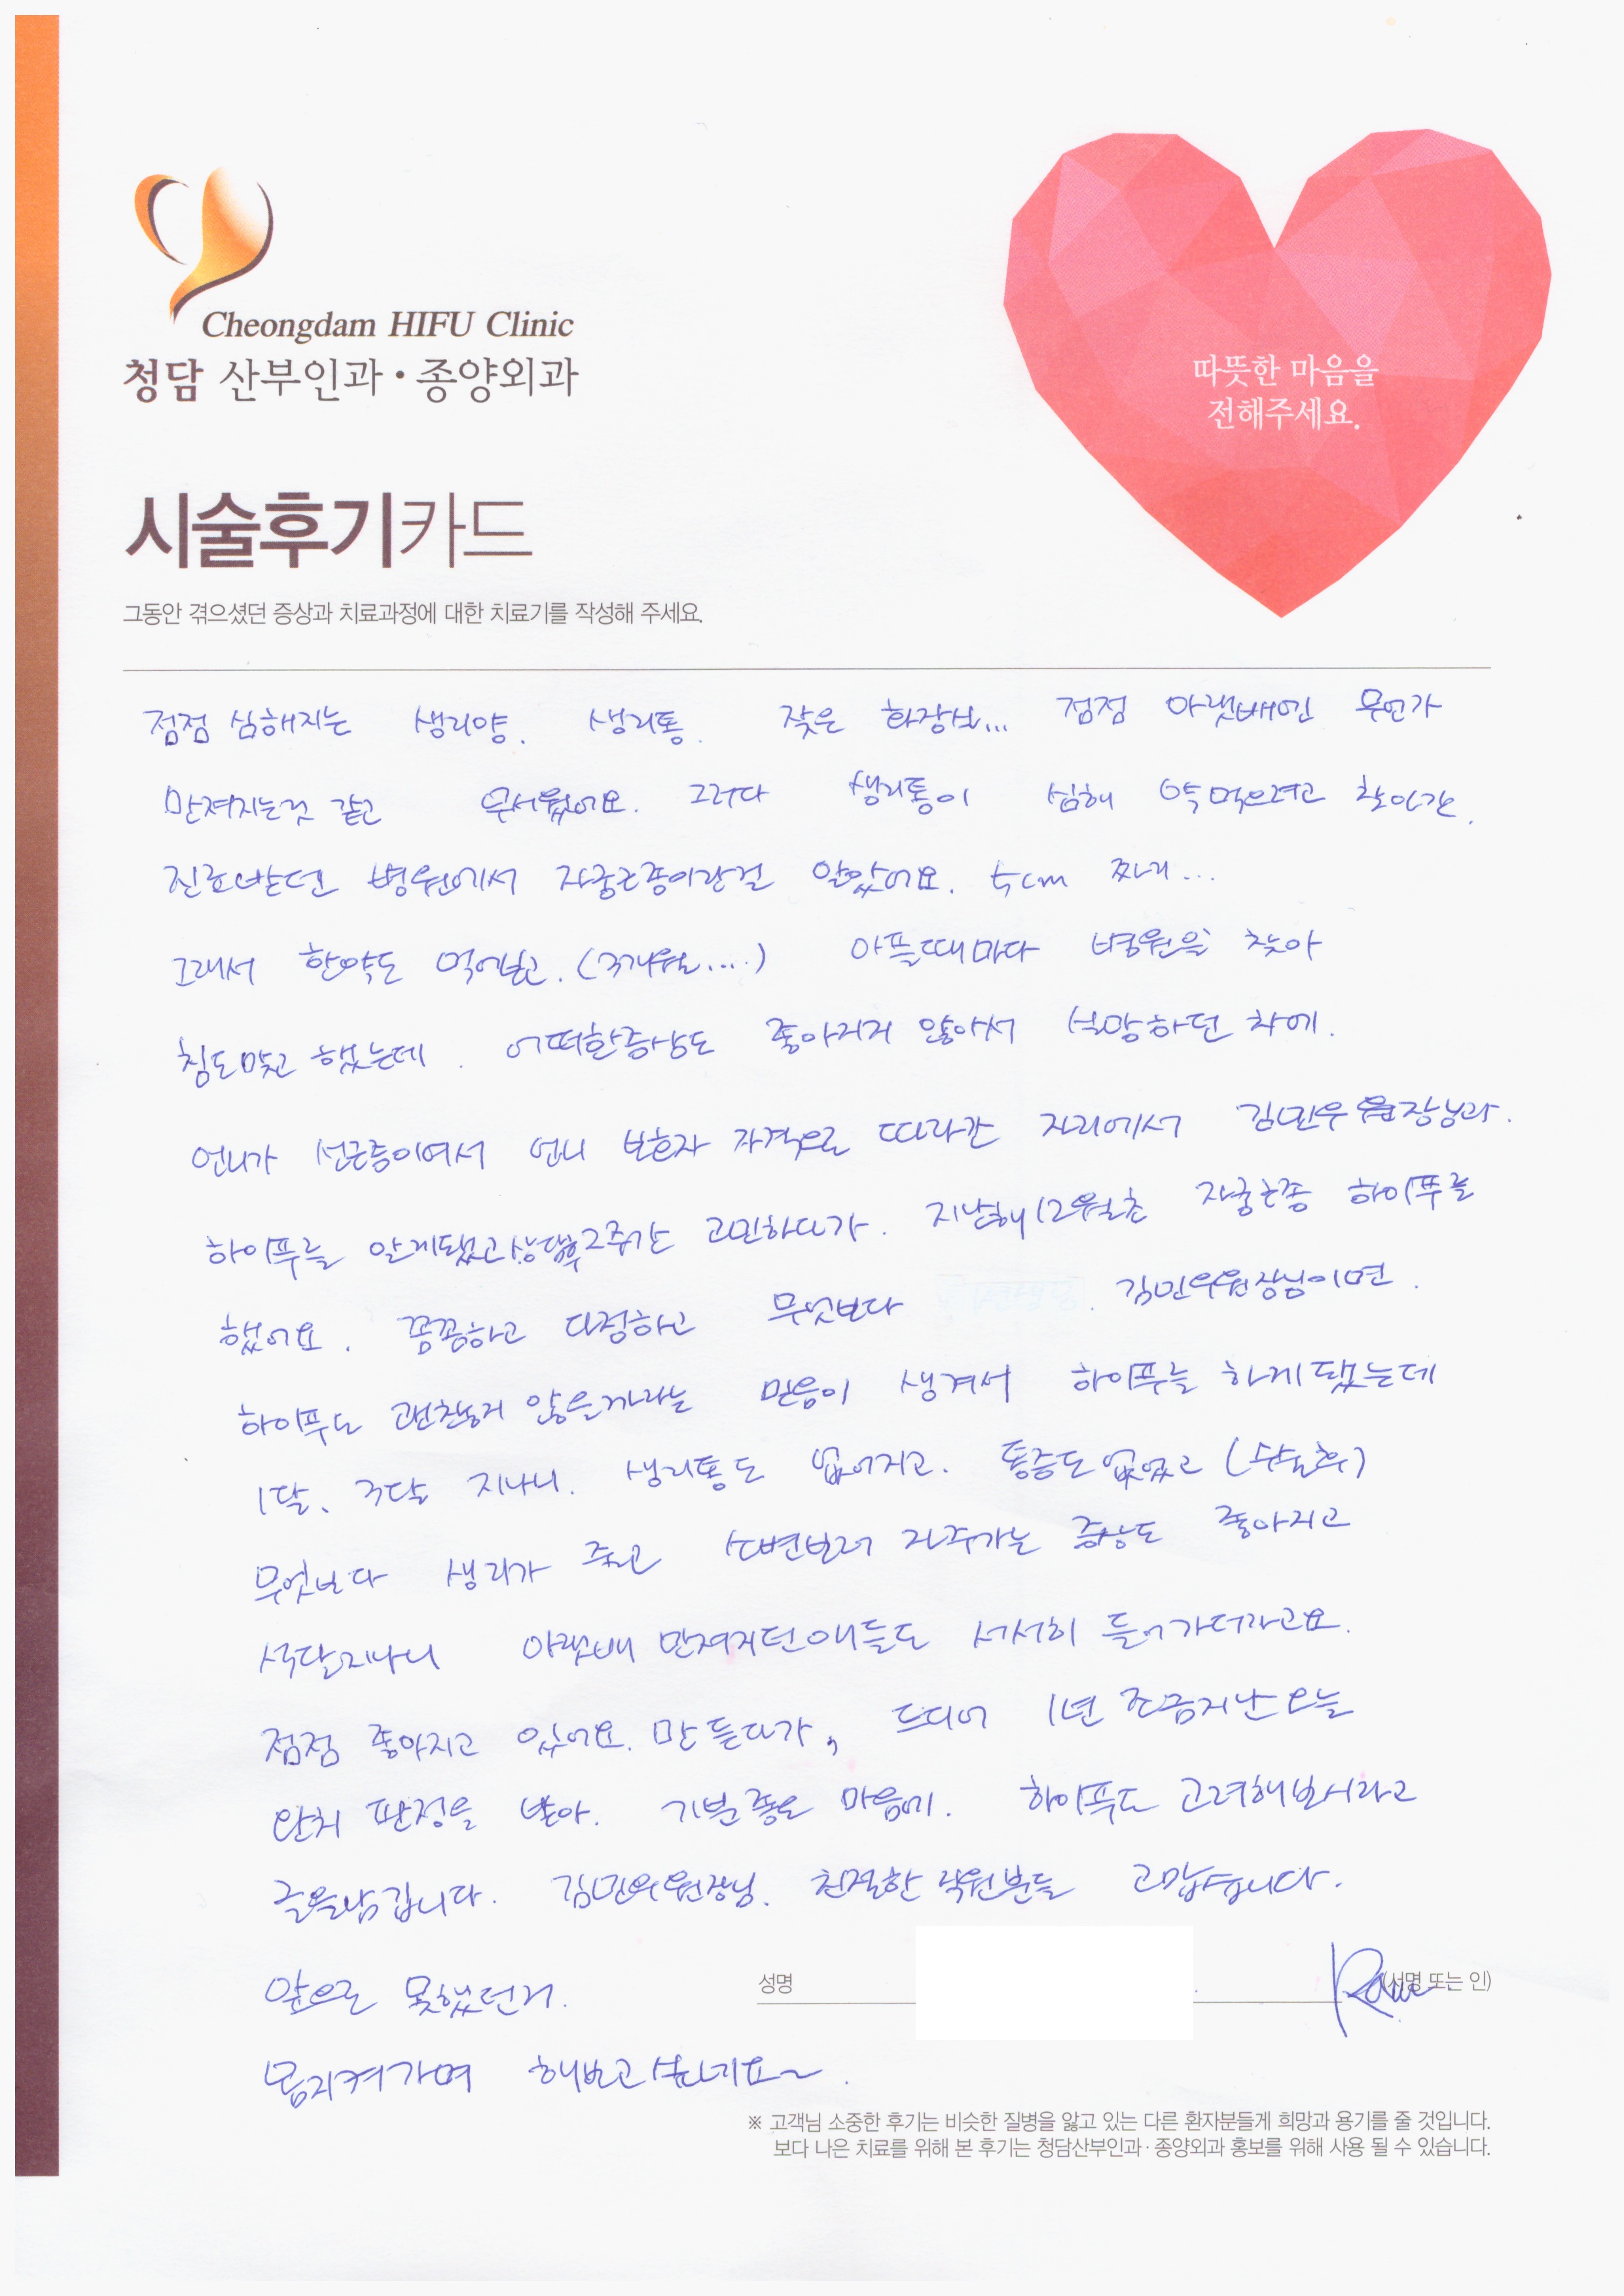 Cheongdam HIFU Clinic
청담 산부인과·종양외과
따뜻한 마음을
전해주세요.
시술후기카드
그동안 겪으셨던 증상과 치료과정에 대한 치료기를 작성해 주세요.
점점 심해지는 생리양. 생리통. 잦은 화장실... 점점 아랫배에 무언가
만져지는것 같고 무서웠어요. 그러다 생리통이 심해 약먹으려고 찾아간.
진료받던 병원에서 자궁근종이란걸 알았어요. 5cm 짜리...
그래서 한약도 먹어보고. (3개월....) 아플때마다 병원을 찾아
침도맞고 했는데. 어떠한증상도 좋아지지 않아서 실망하던 차에.
언니가 선근증이여서 언니 보호자 자격으로 따라간 자리에서 김민우원장님과.
하이푸를 알게됐고상담후2주간 고민하다가. 지난해12월초 자궁근종 하이푸를
했어요. 꼼꼼하고 다정하고 무엇보다. 김민우원장님이면.
하이푸도 괜찮지 않을까라는 믿음이 생겨서 하이푸를 하게됐는데
1달, 3달 지나니. 생리통도 없어지고. 통증도없었고 (수술후)
무엇보다 생리가 줄고 소변보러 자주가는 증상도 좋아지고
석달지나니 아랫배 만져지던애들도 서서히 들어가더라고요.
점점 좋아지고 있어요. 만 듣다가, 드디어 1년 조금지난 오늘
완치 판정을 받아. 기분좋은 마음에. 하이푸도 고려해보시라고
글을남깁니다. 김민우원장님. 친절한 직원분들 고맙습니다.
앞으로 못했던거.
성명 (서명 또는 인)
몸지켜가며 해보고싶네요~.
※ 고객님 소중한 후기는 비슷한 질병을 앓고 있는 다른 환자분들게 희망과 용기를 줄 것입니다.
보다 나은 치료를 위해 본 후기는 청담산부인과·종양외과 홍보를 위해 사용 될 수 있습니다.